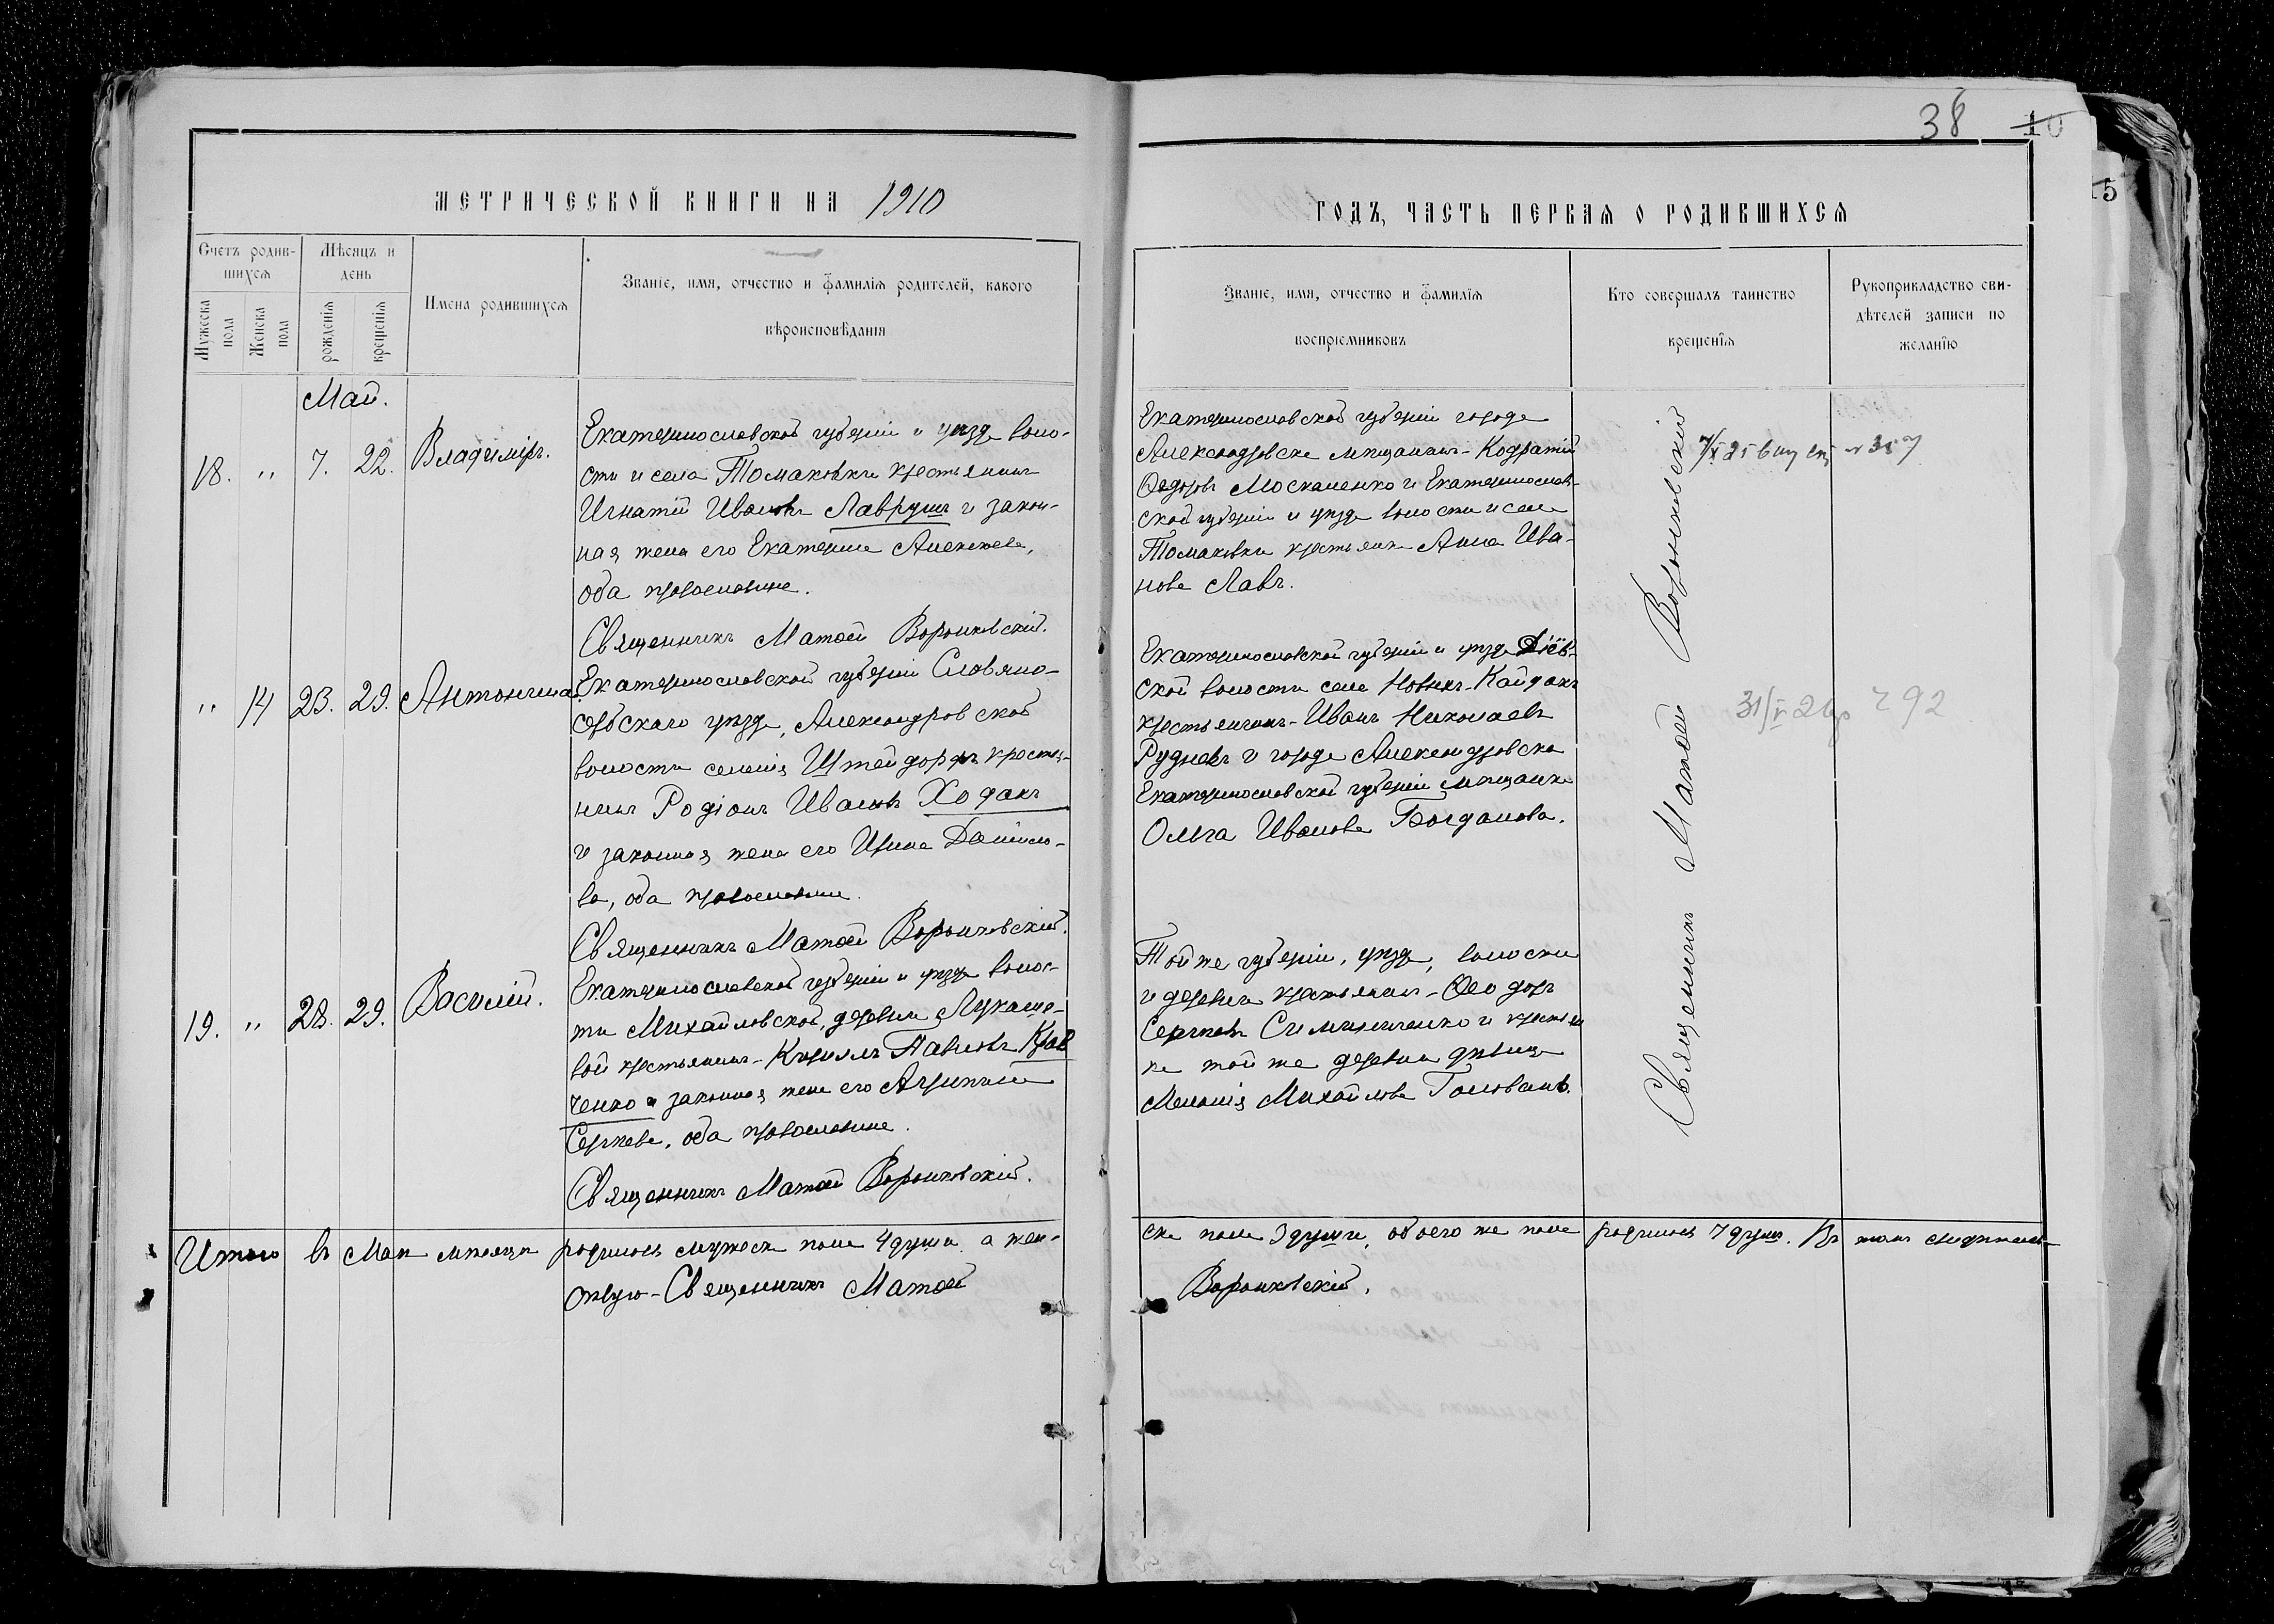 38 10
5
МЕТРИЧЕСКОЙ КНИГИ НА 1910
ГОДЪ, ЧАСТЬ ПЕРВАЯ О РОДИВШИХСЯ
Счетъ родив-
шихся
Мужеска пола
Женска пола
Мѣсяцъ и
день
рожденія
крещенія
Имена родившихся
Званіе, имя, отчество и фамилія родителей, какого
вѣроисповѣданія
Званіе, имя, отчество и фамилія
воспріемниковъ
Кто совершалъ таинство
крещенія
Рукоприкладство сви-
дѣтелей записи по
желанію
Май.
18. „ 7. 22. Владиміръ.
Екатеринославской губерніи и уѣзда воло-
сти и села Томаковки крестьянинъ
Игнатій Ивановъ Лаврушъ и закон-
ная жена его Екатерина Алексѣева,
оба православные.
Священникъ Матѳей Воронковскій.
Екатеринославской губерніи города
Александровска мѣщанинъ - Кодратій
Ѳедоровъ Москаленко и Екатеринослав-
ской губерніи и уѣзда волости и села
Томаковки крестьянка Анна Ива-
нова Лавъ.
„ 14 23. 29. Антонина.
Екатеринославской губерніи Славяно-
сербскаго уѣзда, Александровской
волости селенія Штейдорфъ крестья-
нинъ Родіонъ Ивановъ Ходакъ
и законная жена его Ирина Даніило-
ва, оба православные.
Священникъ Матѳей Воронковскій.
Екатеринославской губерніи и уѣзда Діев-
ской волости села Новыхъ-Кайдакъ
крестьянинъ - Иванъ Николаевъ
Рудневъ и города Александровска
Екатеринославской губерніи мѣщанка
Ольга Иванова Богданова.
792
19. „ 28. 29. Василій.
Екатеринославской губерніи и уѣзда волос-
ти Михайловской, деревни Лукаше-
вой крестьянинъ - Кириллъ Павловъ Крав
ченко и законная жена его Агрипина
Сергѣева, оба православные.
Священникъ Матѳей Воронковскій.
Той же губерніи, уѣзда, волости
и деревни крестьянинъ - Ѳеодоръ
Сергѣевъ Симниченко и крестьян
ка той же деревни дѣвица
Меланія Михайлова Головань.
Священникъ Матѳей Воронковскій
Итого въ Маѣ мѣсяцѣ родилось мужеска пола 4 души, а жен-
ска пола 3 души, обоего же пола родилось 7 душъ. Въ томъ свидѣтель-
ствую - Священникъ Матѳей Воронковскій.